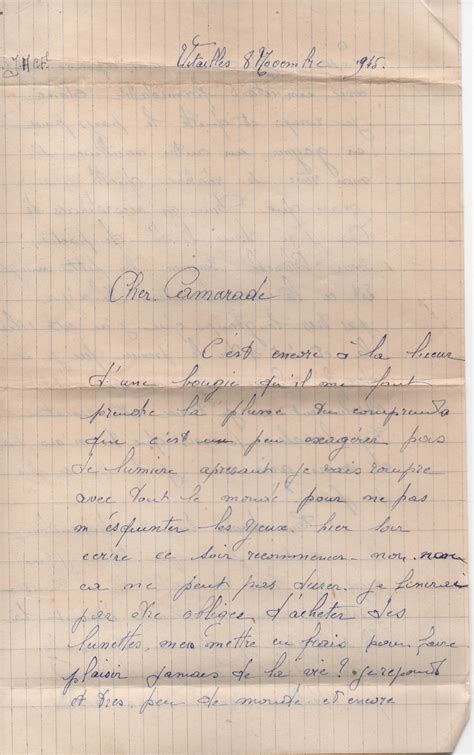 Vitailles 8 Novembre 1945.
Cher. Camarade
C'est encore à la lueur
d'une bougie qu'il me faut
prendre la plume Tu comprends
que c'est un peu exagérer pas
de lumière apresant je vais rompre
avec tout le monde pour ne pas
m'ésquinter les yeux. hier soir
ecrire ce soir recommencer. non. non
ca ne peut pas durer. je finirai
par être obligée d'acheter des
lunettes, me mettre en frais pour faire
plaisir jamais de la vie? je repond
et tres. peu de monde et encore